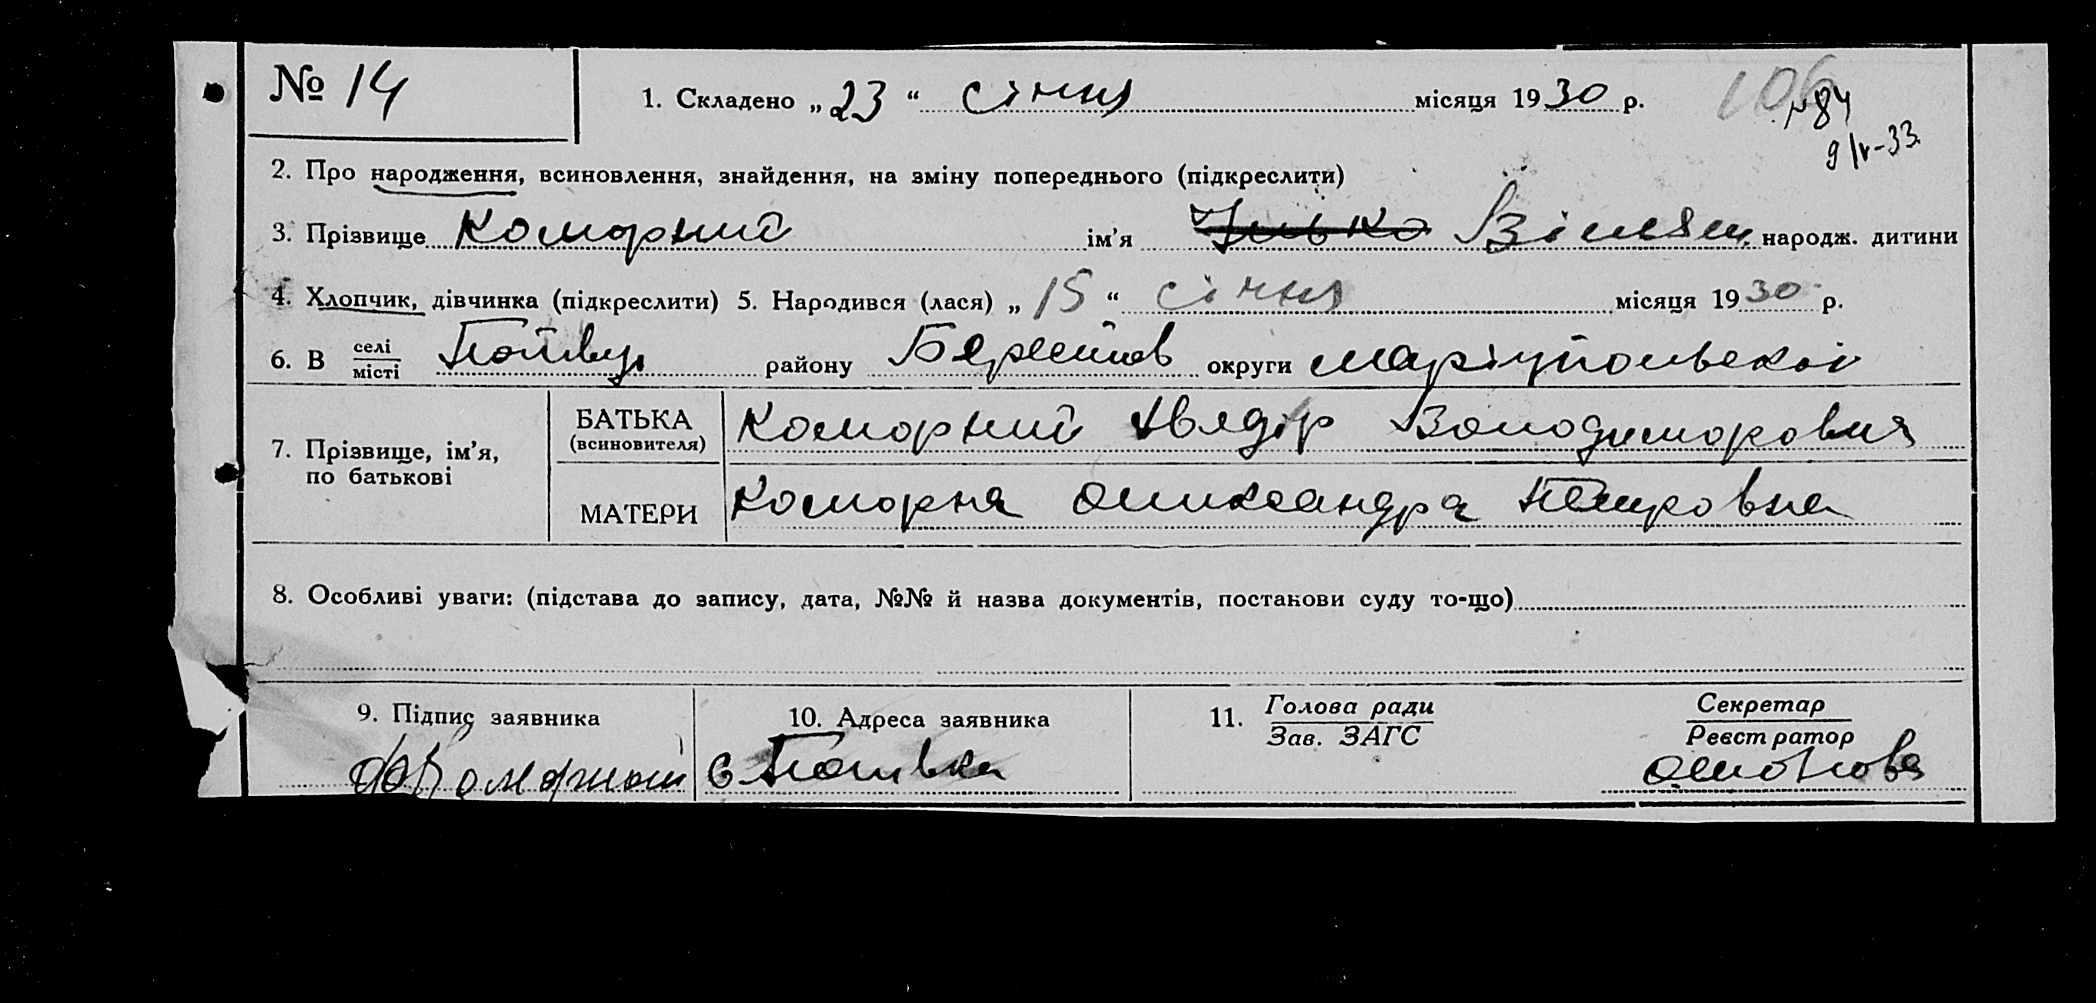 № 14
1. Складено „ 23 “ січня місяця 1930 р.
106
№84
9/V-33
2. Про народження, всиновлення, знайдення, на зміну попереднього (підкреслити)
3. Прізвище Коморний ім’я Вілям народж. дитини
4. Хлопчик, дівчинка (підкреслити) 5. Народився (лася) „ 15 “ січня місяця 1930 р.
6. В селі місті району округи Маріупольскої
7. Прізвище, ім’я, по батькові
БАТЬКА (всиновителя) Коморний Володимирович
МАТЕРИ Коморна Олександра Петровна
8. Особливі уваги: (підстава до запису, дата, №№ й назва документів, постанови суду то-що)
9. Підпис заявника
10. Адреса заявника
11. Голова ради Зав. ЗАГС
Секретар Реєстратор
Коморний
с